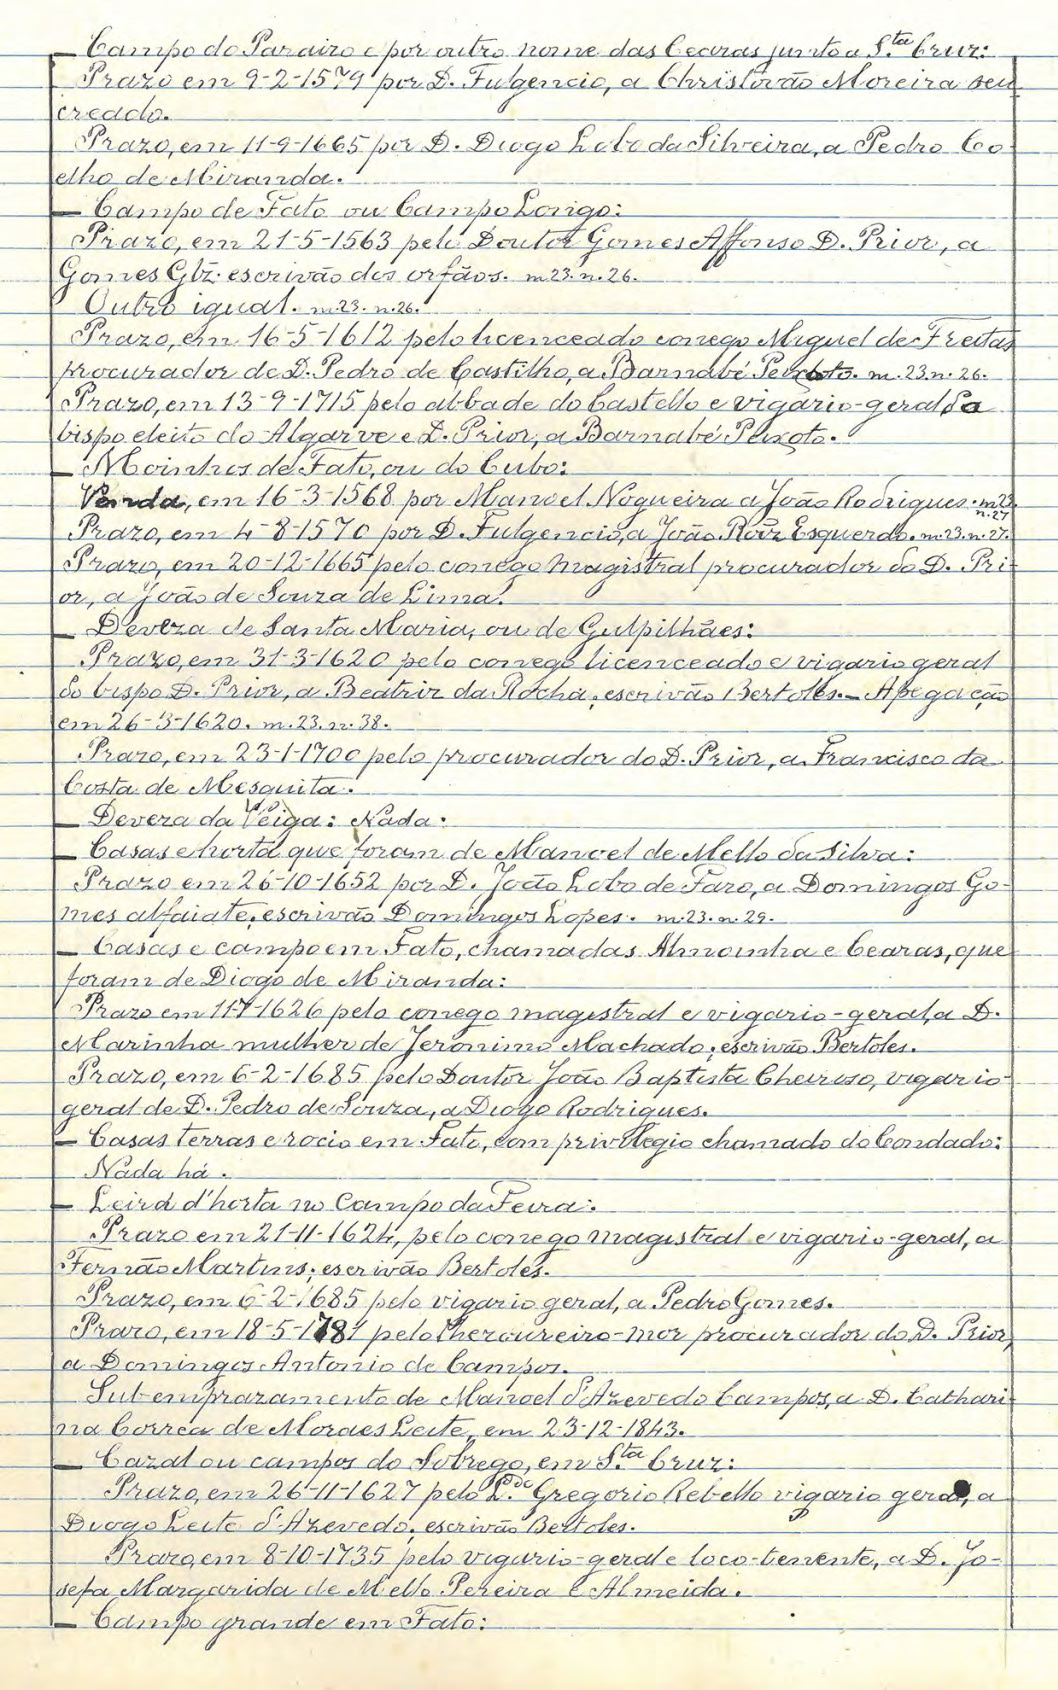 — Campo do Paraizo e por outro nome das Cearas junto a S.ta Cruz:
Prazo em 9-2-1579 por D. Fulgencio, a Christovão Moreira seu
creado.
Prazo, em 11-9-1665 por D. Diogo Lobo da Silveira, a Pedro Co-
elho de Miranda.
— Campo de Fato ou Campo Longo:
Prazo, em 21-5-1563 pelo Doutor Gomes Affonso D. Prior, a
Gomes Glz. escrivão dos orfãos. m.23. n.26.
Outro igual. m.23. n.26.
Prazo, em 16-5-1612 pelo licenceado conego Miguel de Freitas
procurador de D. Pedro de Castilho, a Barnabé Peixoto. m.23. n.26.
Prazo, em 13-9-1715 pelo abbade do Castello e vigario-geral do
bispo eleito do Algarve e D. Prior, a Barnabé Peixoto.
— Moinhos de Fato, ou do Cubo:
Venda, em 16-3-1568 por Manoel Nogueira a João Rodrigues. m.23
n.27
Prazo, em 4-8-1570 por D. Fulgencio, a João Roiz Esquerdo. m.23. n.27.
Prazo, em 20-12-1665 pelo conego magistral procurador do D. Pri-
or, a João de Souza de Lima.
— Deveza de Santa Maria, ou de Gulpilhães:
Prazo, em 31-3-1620 pelo conego licenceado e vigario geral
do bispo D. Prior, a Beatriz da Rocha; escrivão Bertoles. — Apegação
em 26-3-1620. m.23. n.38.
Prazo, em 23-1-1700 pelo procurador do D. Prior, a Francisco da
Costa de Mesquita.
— Deveza da Veiga: Nada.
— Casas e horta que foram de Manoel de Mello da Silva:
Prazo em 26-10-1652 por D. João Lobo de Faro, a Domingos Go-
mes alfaiate; escrivão Domingos Lopes. m.23. n.29.
— Casas e campo em Fato, chamadas Almoinha e Cearas, que
foram de Diogo de Miranda:
Prazo em 11-7-1626 pelo conego magistral e vigario-geral, a D.
Marinha mulher de Jeronimo Machado; escrivão Bertoles.
Prazo, em 6-2-1685 pelo Doutor João Baptista Cheiroso, vigario-
geral de D. Pedro de Souza, a Diogo Rodrigues.
— Casas terras e rocio em Fato, com privilegio chamado do Condado:
Nada há.
— Leira d'horta no Campo da Feira:
Prazo em 21-11-1624, pelo conego magistral e vigario-geral, a
Fernão Martins; escrivão Bertoles.
Prazo, em 6-2-1685 pelo vigario geral, a Pedro Gomes.
Prazo, em 18-5-1781 pelo thezoureiro-mor procurador do D. Prior,
a Domingos Antonio de Campos.
Sub-emprazamento de Manoel d'Azevedo Campos, a D. Cathari-
na Correa de Moraes Leite, em 23-12-1843.
— Cazal ou campos do Sobrego, em S.ta Cruz:
Prazo, em 26-11-1627 pelo L.do Gregorio Rebello vigario geral, a
Diogo Leite d'Azevedo; escrivão Bertoles.
Prazo, em 8-10-1735 pelo vigario-geral e loco-tenente, a D. Jo-
sefa Margarida de Mello Pereira e Almeida.
— Campo grande em Fato: